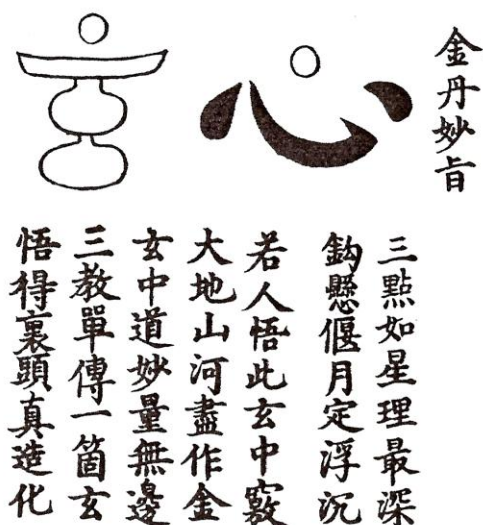 金丹妙旨
心
玄
三點如星理最深
鈎懸偃月定浮沉
若人悟此玄中竅
大地山河盡作金
玄中道妙量無邊
三教單傳一箇玄
悟得裏頭真造化